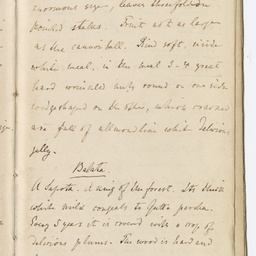 enormous size, leaves three fold on
pointed stalks. Fruit as large
as the cannon ball. Rind soft, inside
white meal, in the meal 3-4 great
hard wrinkled nuts round on one side
wedgeshaped on the other, whose
are full of almondlike white delicious
jelly.
Balata.
A Sapota. A king of the forest. Its thick
white milk congeals to Gutta percha.
Every 5 years it is covered with a crop of
delicious plums. The wood is hard and